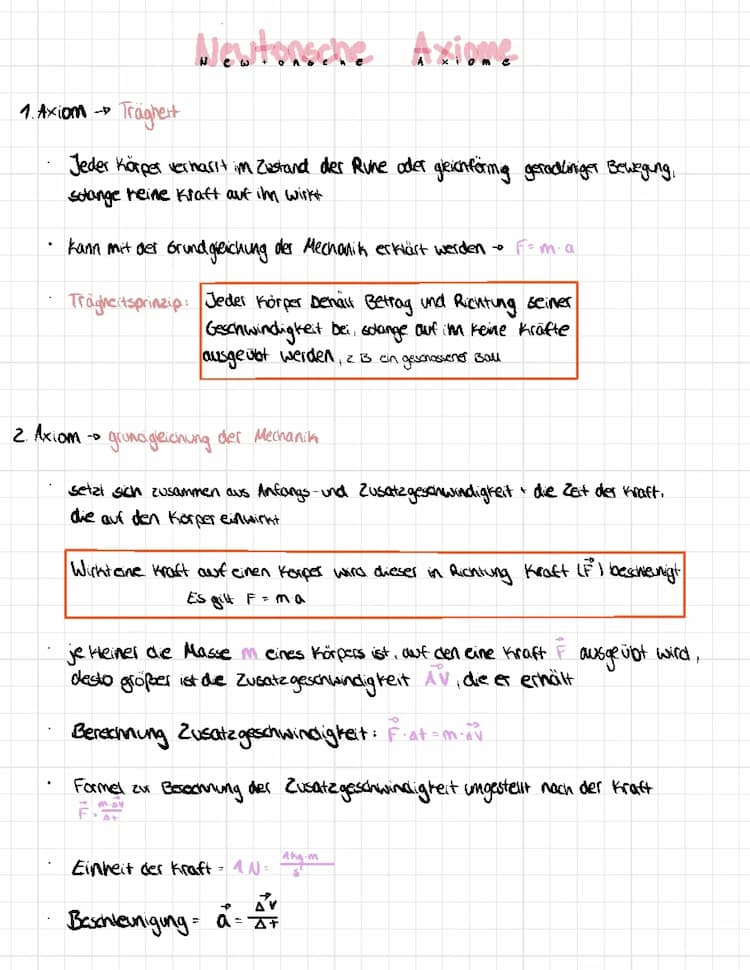 Newtonsche Axiome
Newtonsche Axiome
1. Axiom → Trägheit
· Jeder Körper verharrt im Zustand der Ruhe oder gleichförmig geradliniger Bewegung,
solange keine Kraft auf ihn wirkt
· kann mit der Grundgleichung der Mechanik erklärt werden → F = m · a
· Trägheitsprinzip: Jeder Körper behält Betrag und Richtung seiner
Geschwindigkeit bei, solange auf ihm keine Kräfte
ausgeübt werden, z B ein geschossener Ball
2. Axiom → grundgleichung der Mechanik
· setzt sich zusammen aus Anfangs- und Zusatzgeschwindigkeit + die Zeit der Kraft,
die auf den Körper einwirkt
Wirkt eine Kraft auf einen Körper wird dieser in Richtung Kraft (F⃗) beschleunigt
Es gilt F = m a
· je kleiner die Masse m eines Körpers ist, auf den eine Kraft F⃗ ausgeübt wird,
desto größer ist die Zusatzgeschwindigkeit Δv⃗, die er erhält
· Berechnung Zusatzgeschwindigkeit: F⃗ · Δt = m · Δv⃗
· Formel zur Berechnung der Zusatzgeschwindigkeit umgestellt nach der Kraft
F⃗ = m·Δv⃗ / Δt
· Einheit der Kraft = 1 N = 1 kg·m / s²
· Beschleunigung = a⃗ = Δv⃗ / Δt